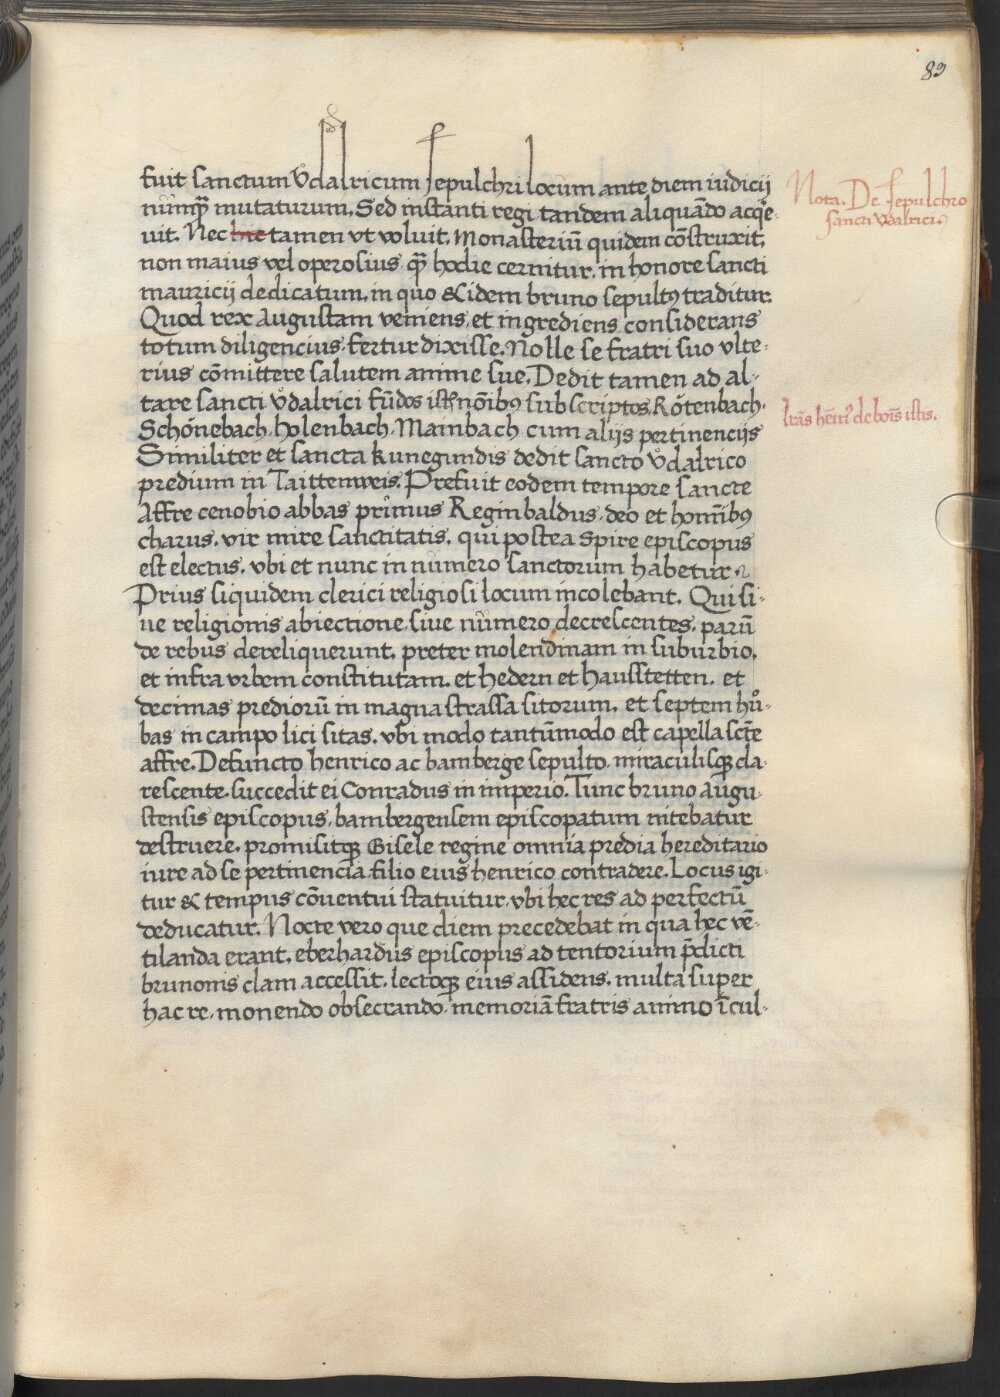 83
fuit sanctum Vͦdalricum sepulchri locum ante diem iudicij
nūmqꝫ mutaturum. Sed instanti regi tandem aliquādo acq̄e-
uit. Nec hic tamen vt voluit. Monasteriū quidem cōstruxit;
non maius vel operosius qꝫ hodie cernitur. in honore sancti
mauricij dedicatum. in quo & idem bruno sepultꝰ traditur.
Quod rex Augustam veniens et ingrediens considerans
totum diligencius fertur dixisse. Nolle se fratri suo vlte-
rius cōmittere salutem anime sue. Dedit tamen ad al-
tare sancti Vͦdalrici fūdos istis nōibꝰ subscriptos. Rötenbach.
Schönebach. holenbach. Mambach cum alijs pertinencijs
Similiter et sancta kunegundis dedit sancto vͦdalrico
predium in Taittemweis. Prefuit eodem tempore sancte
Affre cenobio abbas primus Reginbaldus. deo et hominibꝰ
charus. vir mire sanctitatis. qui postea Spire episcopus
est electus. vbi et nunc in numero sanctorum habetur.
Prius siquidem clerici religiosi locum incolebant. Qui si-
ue religionis abiectione. siue numero decrescentes. parū
de rebus dereliquerunt. preter molendinam in suburbio.
et infra vrbem constitutam. et hedern et hausstetten. et
decimas prediorū in magna strassa sitorum. et septem hůͦ-
bas in campo lici sitas. vbi modo tantūmodo est capella scte
affre. Defuncto henrico ac bamberge sepulto. miraculisqꝫ cla-
rescente. succedit ei Conradus in imperio. Tunc bruno augu-
stensis episcopus. bambergensem episcopatum nitebatur
destruere. promisitqꝫ Gisele regine omnia predia hereditario
iure ad se pertinencia filio eius henrico contradere. Locus igi-
tur & tempus cōuentui statuitur. vbi hec res ad perfectū
deducatur. Nocte vero que diem precedebat in qua hec vē-
tilanda erant. eberhardus episcopus ad tentorium p̄dicti
brunonis clam accessit. lectoqꝫ eius assidens. multa super
hac re. monendo obsecrando. memoriā fratris animo īcul-
Nota. De sepulchro
sancti vdalrici
lrās hēn9 de bois istis.